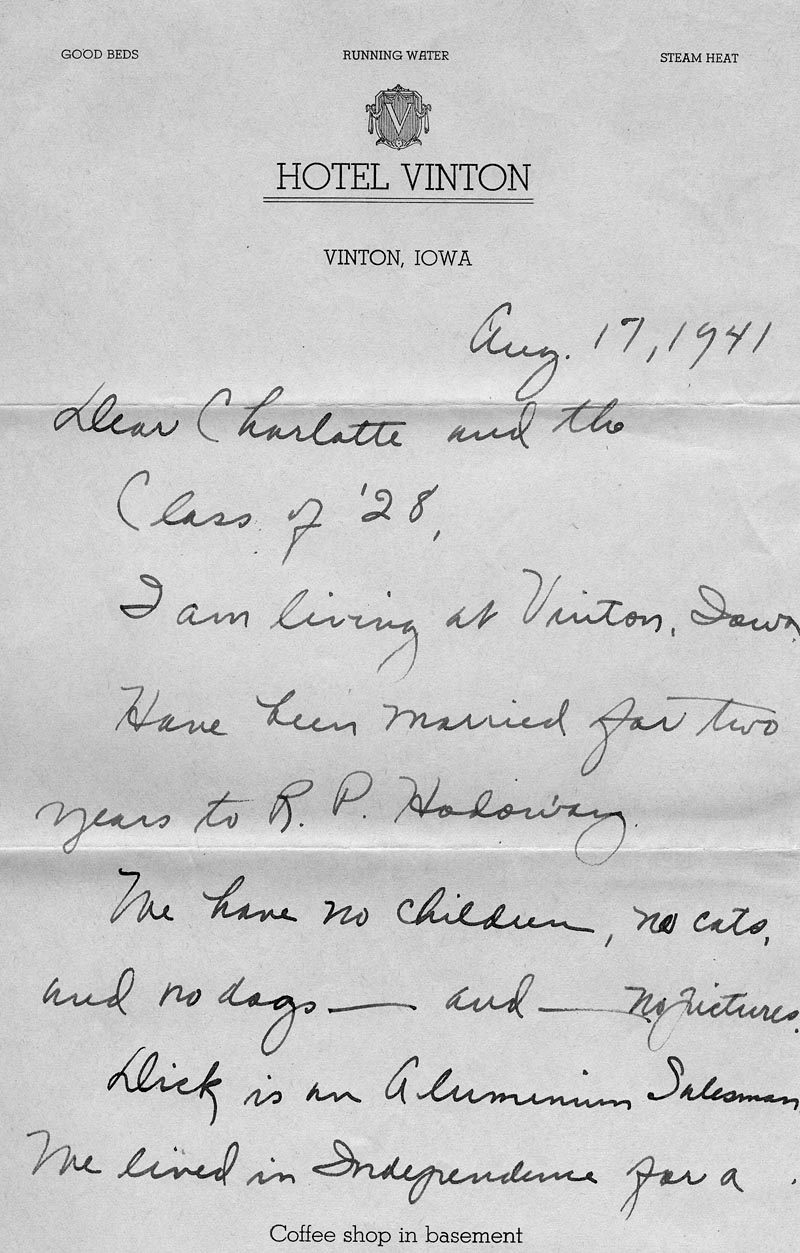 GOOD BEDS RUNNING WATER STEAM HEAT
V
HOTEL VINTON
VINTON, IOWA
Aug. 17, 1941
Dear Charlotte and the
Class of '28,
I am living at Vinton, Iowa.
Have been married for two
years to R. P. Hadoway.
We have no children, no cats,
and no dogs — and — no pictures.
Dick is an Aluminium Salesman
We lived in Independence for a
Coffee shop in basement